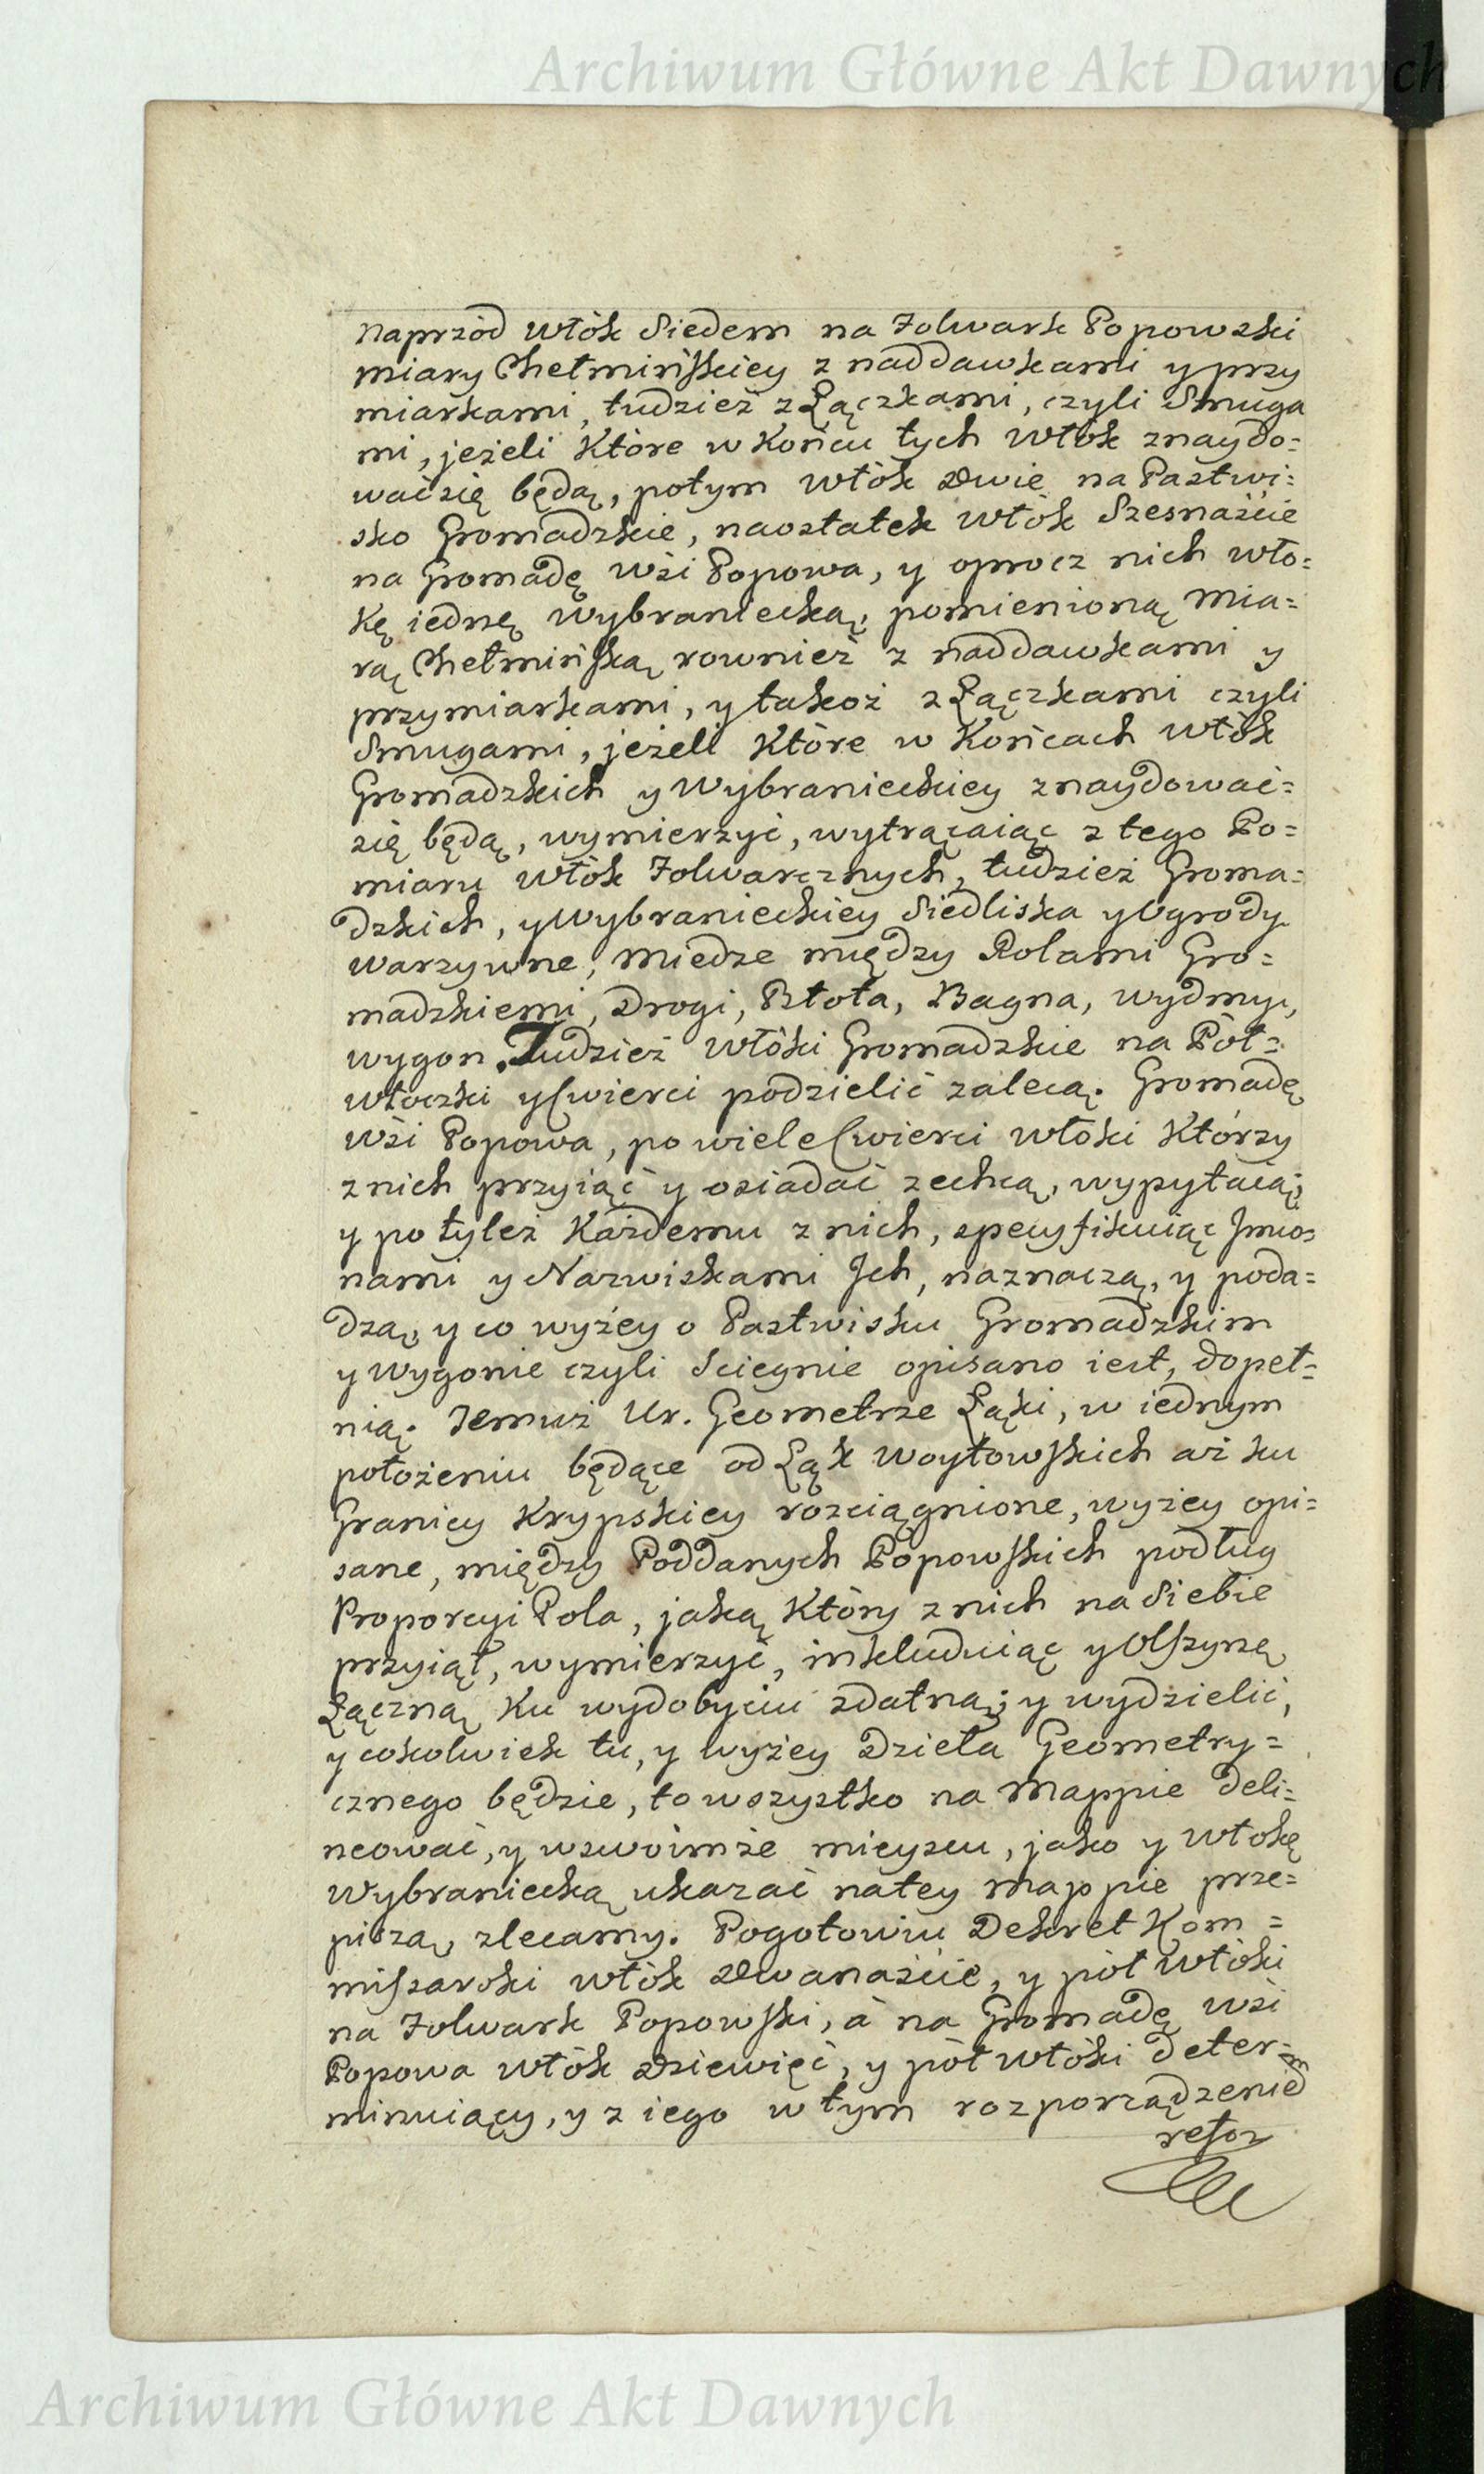 Archiwum Główne Akt Dawnych
Naprzód włók Siedem na Folwark Popowski
miary Chełmińskiey z naddawkami y przy
miarkami, tudzież z Łączkami, czyli Smuga
mi, jeżeli Które w Końcu tych Włók znaydo=
wać się będą, potym włók Dwie na Pastwi=
sko Gromadzkie, naostatek Włók Szesnaście
na Gromadę Wsi Popowa, y oprocz nich Wło=
Kę iednę Wybraniecką, pomienioną Mia=
rą Chełmińską rownież z naddawkami y
przymiarkami, y takoż z Łączkami czyli
Smugami, jeżeli Które w Końcach Włók
Gromadzkich y Wybranieckiey znaydować=
się będą, wymierzyć, wytrącaiąc z tego Po=
miaru Włók Folwarcznych, tudzież Groma=
dzkich, y Wybranieckiey Siedliska y Ogrody
Warzywne, Miedze między Rolami Gro=
madzkiemi, Drogi, Błota, Bagna, wydmy,
wygon. Tudzież Włóki Gromadzkie na Pół=
włoczki y Cwierci podzielić zalecą. Gromadę
Wsi Popowa, po wiele Cwierci włóki Którzy
z nich przyiąć y osiadać zechcą, wypytaią;
y po tyleż Każdemu z nich, specyfikuiąc Jmio=
nami y Nazwiskami Jch, naznaczą, y poda=
dzą, y co wyżey o Pastwisku Gromadzkim
y Wygonie czyli Sciegnie opisano iest, dopeł=
nią. Temuż Ur. Geometrze Łąki, w iednym
położeniu będące od Łąk Woytowskich aż ku
Granicy Krypskiey rozciągnione, wyżey opi=
sane, między Poddanych Popowskich podług
Proporcyi Pola, jaką Który z nich na Siebie
przyiął, wymierzyć, inkluduiąc y Olszynę
Łączną Ku wydobyciu zdatną; y wydzielić,
y cokolwiek tu, y wyżey Dzieła Geometry=
cznego będzie, to wszystko na Mappie deli=
neować, y w swoimże mieyscu, jako y Włokę
Wybraniecką ukazać na tey Mappie prze=
piszą, zlecamy. Pogotowiu Dekret Kom=
missarski włók Dwanaście, y pół Włóki
na Folwark Popowski, à na Gromadę Wsi
Popowa Włók Dziewięć, y pół Włóki deter=
minuiący, y z iego w tym rozporządzeniem
refor
Archiwum Główne Akt Dawnych